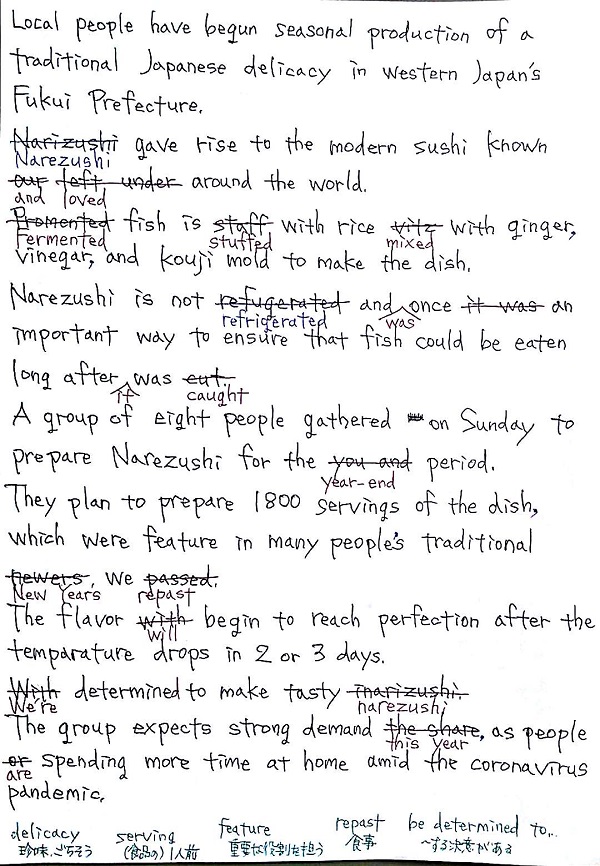 Local people have begun seasonal production of a
traditional Japanese delicacy in western Japan's
Fukui Prefecture.
Narizushi gave rise to the modern sushi known
Narezushi
our left under around the world.
and loved
Promented fish is staff with rice vitz with ginger,
fermented stuffed mixed
vinegar, and kouji mold to make the dish.
Narezushi is not refugerated and once it was an
refrigerated was
important way to ensure that fish could be eaten
long after was cut.
it caught
A group of eight people gathered on Sunday to
prepare Narezushi for the you and period.
year-end
They plan to prepare 1800 servings of the dish,
which were feature in many people's traditional
newers, we passed.
New Years repast
The flavor with begin to reach perfection after the
will
temparature drops in 2 or 3 days.
With determined to make tasty inarizushi.
We're narezushi
The group expects strong demand the share, as people
this year
or spending more time at home amid the coronavirus
are
pandemic.
delicacy serving feature repast be determined to...
珍味、ごちそう (食品の)1人前 重要な役割を担う 食事 〜する決意がある